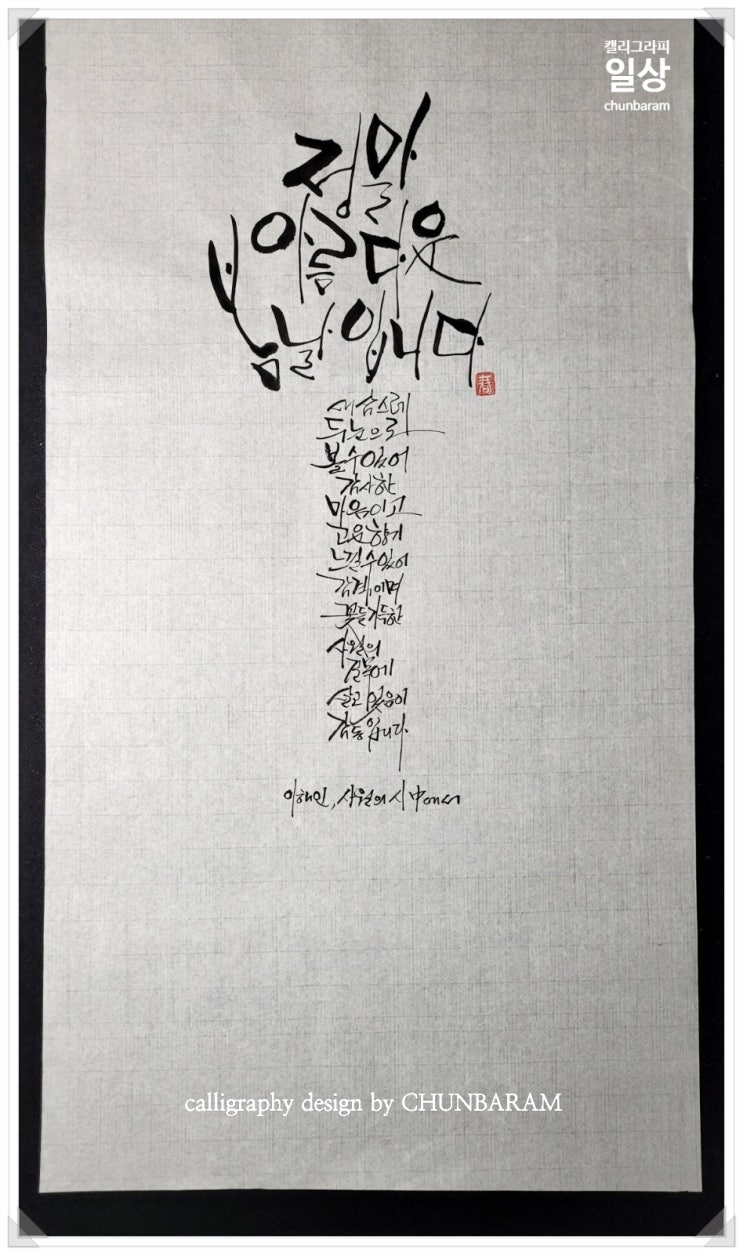 캘리그라피
일상
chunbaram
정말
아름다운
봄날입니다.
春
새삼스레
두 눈으로
볼 수 있어
감사한
마음이고
고운 향기
느낄 수 있어
감격이며
꽃들 가득한
사월의
길목에
살고 있음이
감동입니다.
이해인, 사월의 시 中에서
calligraphy design by CHUNBARAM